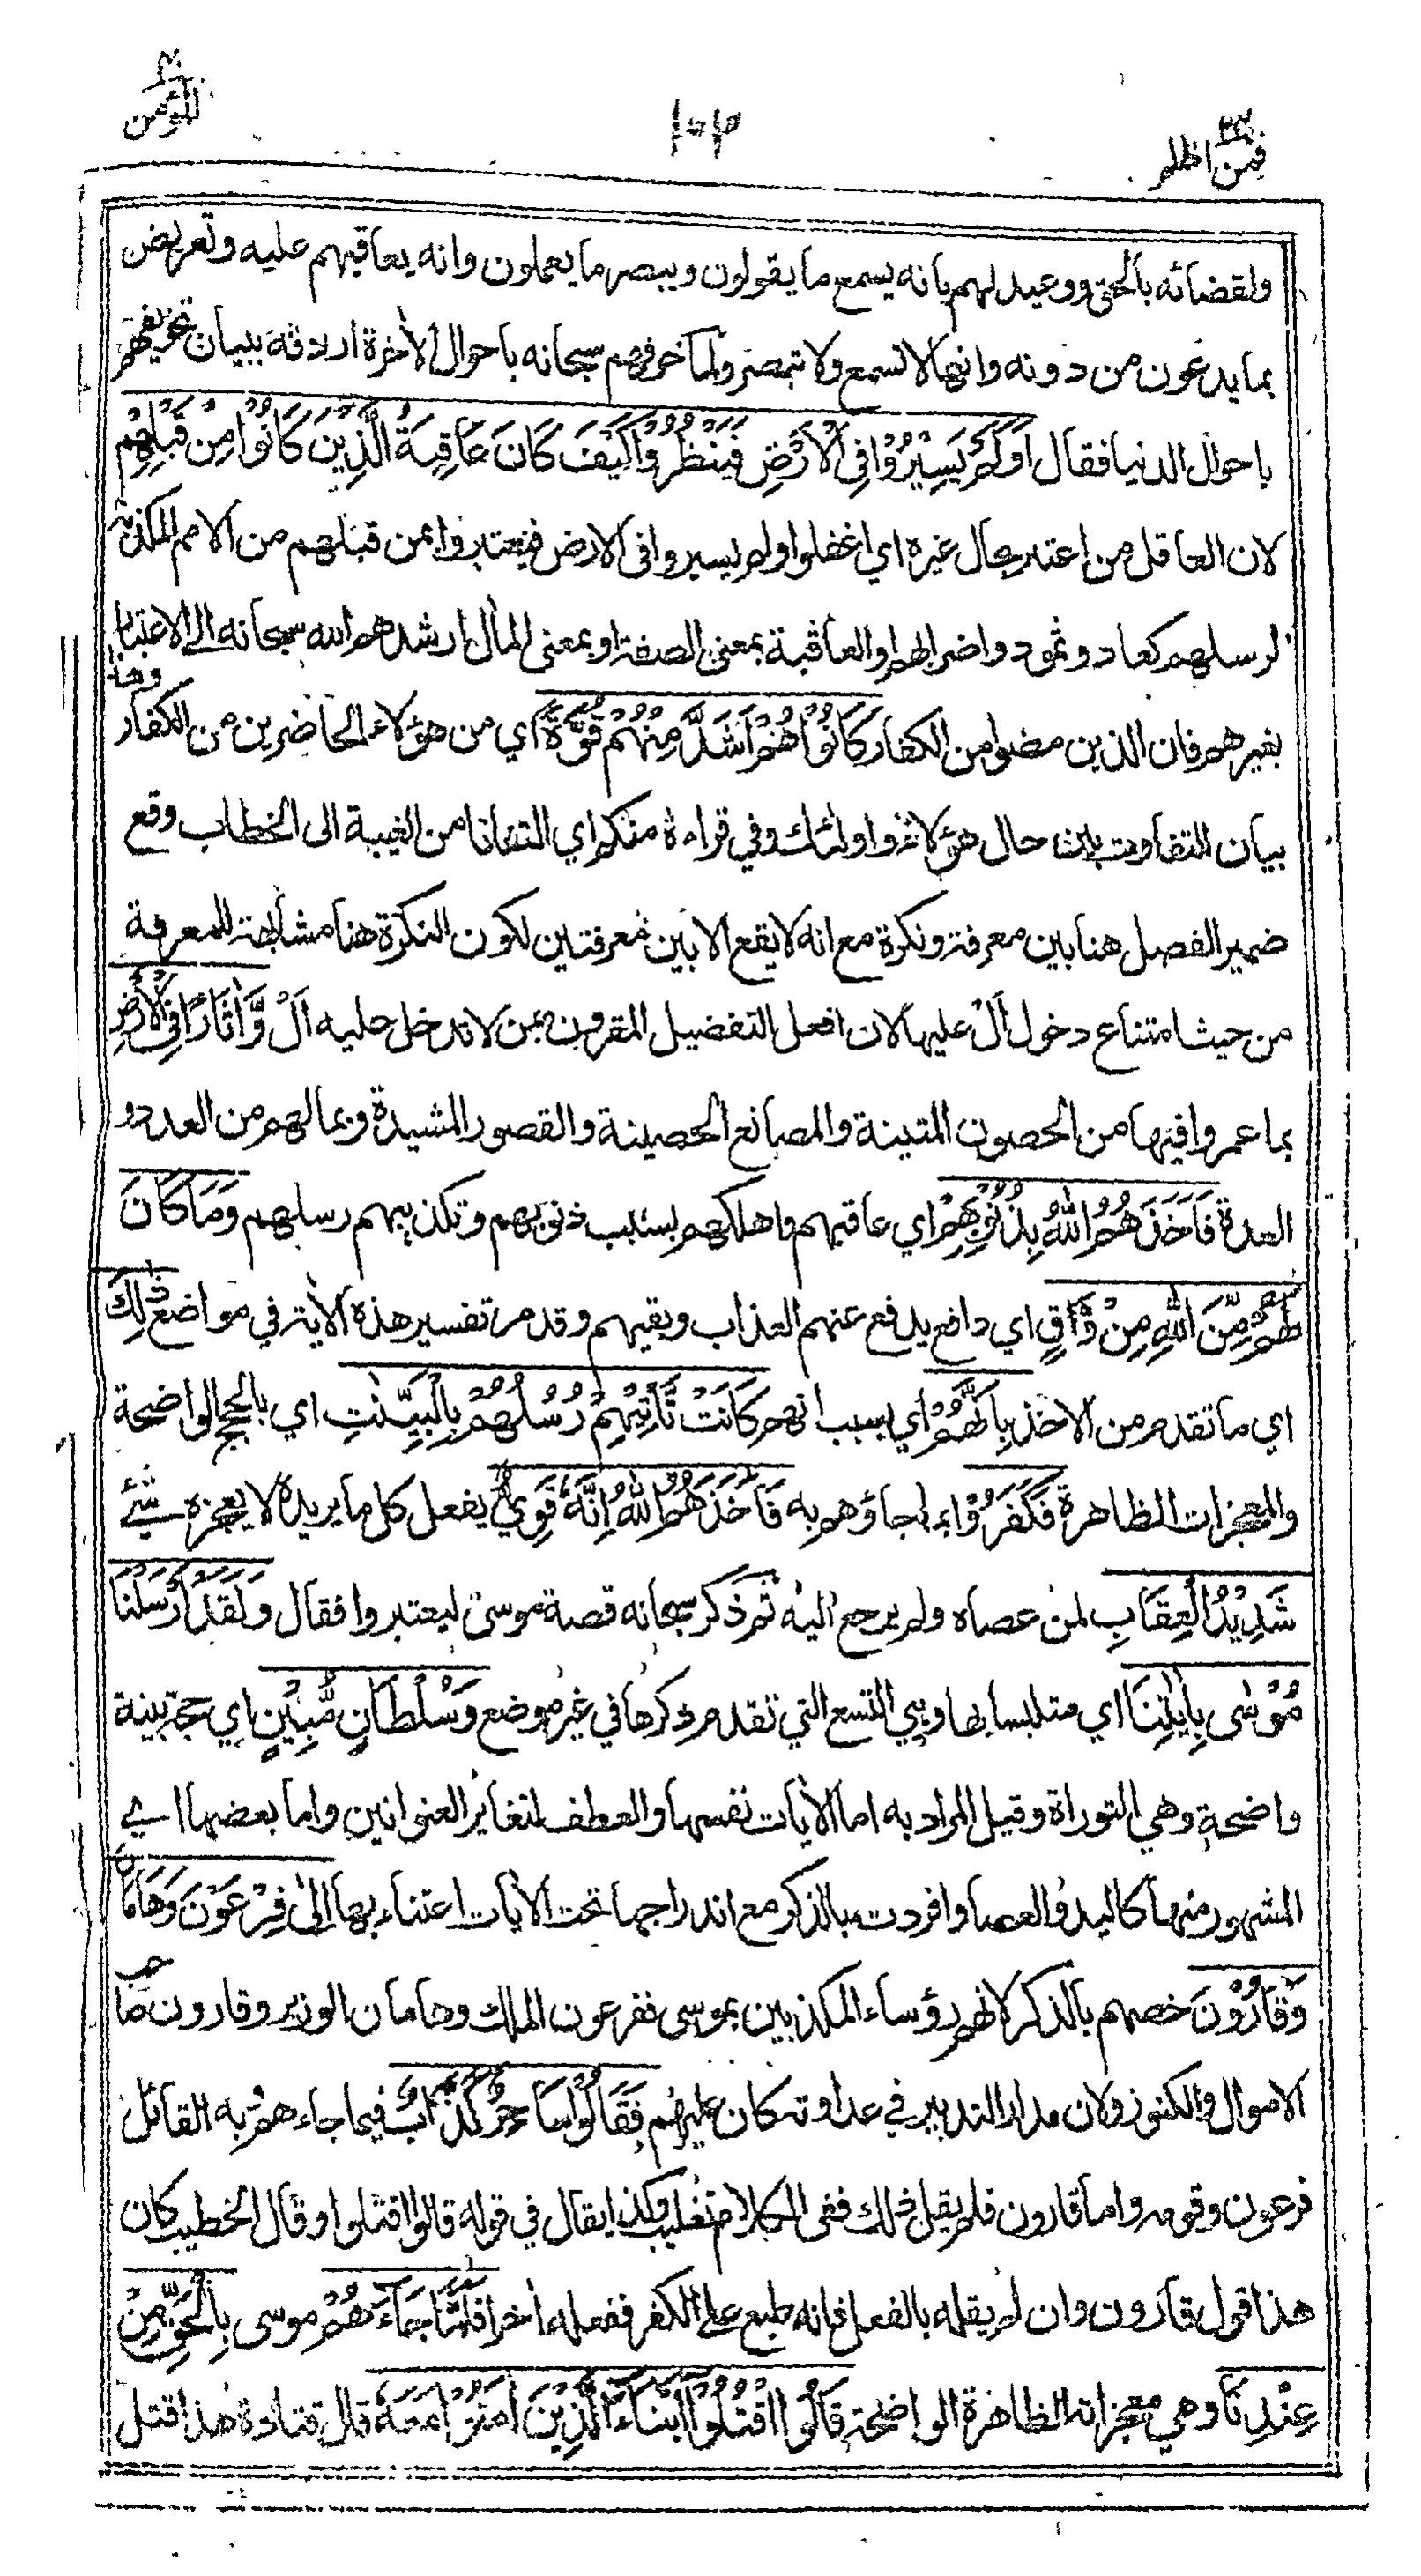 المؤمن ٤٠
١٠٢
فمن اظلم ٢٤
ولقضائه بالحق ووعيد لهم بانه يسمع ما يقولون ويبصر ما يعملون وانه يعاقبهم عليه وتعريض
بما يدعون من دونه وانها لا تسمع ولا تبصر ولما خوفهم سبحانه باحوال الاخرة اردفه ببيان تخويفهم
باحوال الدنيا فقال اَوَلَمْ يَسِيْرُوْا فِي الْاَرْضِ فَيَنْظُرُوْا كَيْفَ كَانَ عَاقِبَةُ الَّذِيْنَ كَانُوْا مِنْ قَبْلِهِمْ
لان العاقل من اعتبر بحال غيره اي اغفلوا ولم يسيروا في الارض فيعتبروا بمن قبلهم من الامم المكذبة
لرسلهم كعاد وثمود واضرابهم والعاقبة بمعنى الصفة او بمعنى المآل ارشدهم الله سبحانه الى الاعتبار
بغيرهم فان الذين مضوا من الكفار كَانُوْا هُمْ اَشَدَّ مِنْهُمْ قُوَّةً اي من هؤلاء الحاضرين من الكفار وهذا
بيان للتفاوت بين حال هؤلاء واولئك وفي قراءة منكم اي التفاتا من الغيبة الى الخطاب وقع
ضمير الفصل هنا بين معرفة ونكرة مع انه لا يقع الا بين معرفتين لكون النكرة هنا مشابهة للمعرفة
من حيث امتناع دخول اَلْ عليها لان افعل التفضيل المقرون بمن لا تدخل عليه اَلْ وَّاٰثَارًا فِي الْاَرْضِ
بما عمروا فيها من الحصون المتينة والمصانع الحصينة والقصور المشيدة وبما لهم من العدد و
العدة فَاَخَذَهُمُ اللّٰهُ بِذُنُوْبِهِمْ اي عاقبهم واهلكهم بسبب ذنوبهم وتكذيبهم رسلهم وَمَا كَانَ
لَهُمْ مِّنَ اللّٰهِ مِنْ وَّاقٍ اي دافع يدفع عنهم العذاب ويقيهم وقد مر تفسير هذه الآية في مواضع ذٰلِكَ
اي ما تقدم من الاخذ بِاَنَّهُمْ اي بسبب انهم كَانَتْ تَّاْتِيْهِمْ رُسُلُهُمْ بِالْبَيِّنٰتِ اي بالحجج الواضحة
والمعجزات الظاهرة فَكَفَرُوْا بما جاؤهم به فَاَخَذَهُمُ اللّٰهُ اِنَّهٗ قَوِيٌّ يفعل كل ما يريده لا يعجزه شئ
شَدِيْدُ الْعِقَابِ لمن عصاه ولم يرجع اليه ثم ذكر سبحانه قصة موسى ليعتبروا فقال وَلَقَدْ اَرْسَلْنَا
مُوْسٰى بِاٰيٰتِنَا اي متلبسا بها وهي التسع التي تقدم ذكرها في غير موضع وَسُلْطَانٍ مُّبِيْنٍ اي حجة بينة
واضحة وهي التوراة وقيل المراد به اما الآيات نفسها والعطف لتغاير العنوانين واما بعضها اي
المشهور منها كاليد والعصا وافردت بالذكر مع اندراجها تحت الآيات اعتناء بها اِلٰى فِرْعَوْنَ وَهَامَانَ
وَقَارُوْنَ خصهم بالذكر لانهم رؤساء المكذبين بموسى ففرعون الملك وهامان الوزير وقارون صاحب
الاموال والكنوز ولان مدار التدبير في عداوته كان عليهم فَقَالُوْا سَاحِرٌ كَذَّابٌ فيما جاءهم به القائل
فرعون وقومه واما قارون فلم يقل ذلك ففي الكلام تغليب وكذا يقال في قوله قالوا اقتلوا وقال الخطيب كان
هذا قول قارون وان لم يقله بالفعل فانه طبع على الكفر ففعله اٰخرا فَلَمَّا جَآءَهُمْ موسى بِالْحَقِّ مِنْ
عِنْدِنَا وهي معجزاته الظاهرة الواضحة قَالُوا اقْتُلُوْا اَبْنَآءَ الَّذِيْنَ اٰمَنُوْا مَعَهٗ قال قتادة هذا قتل